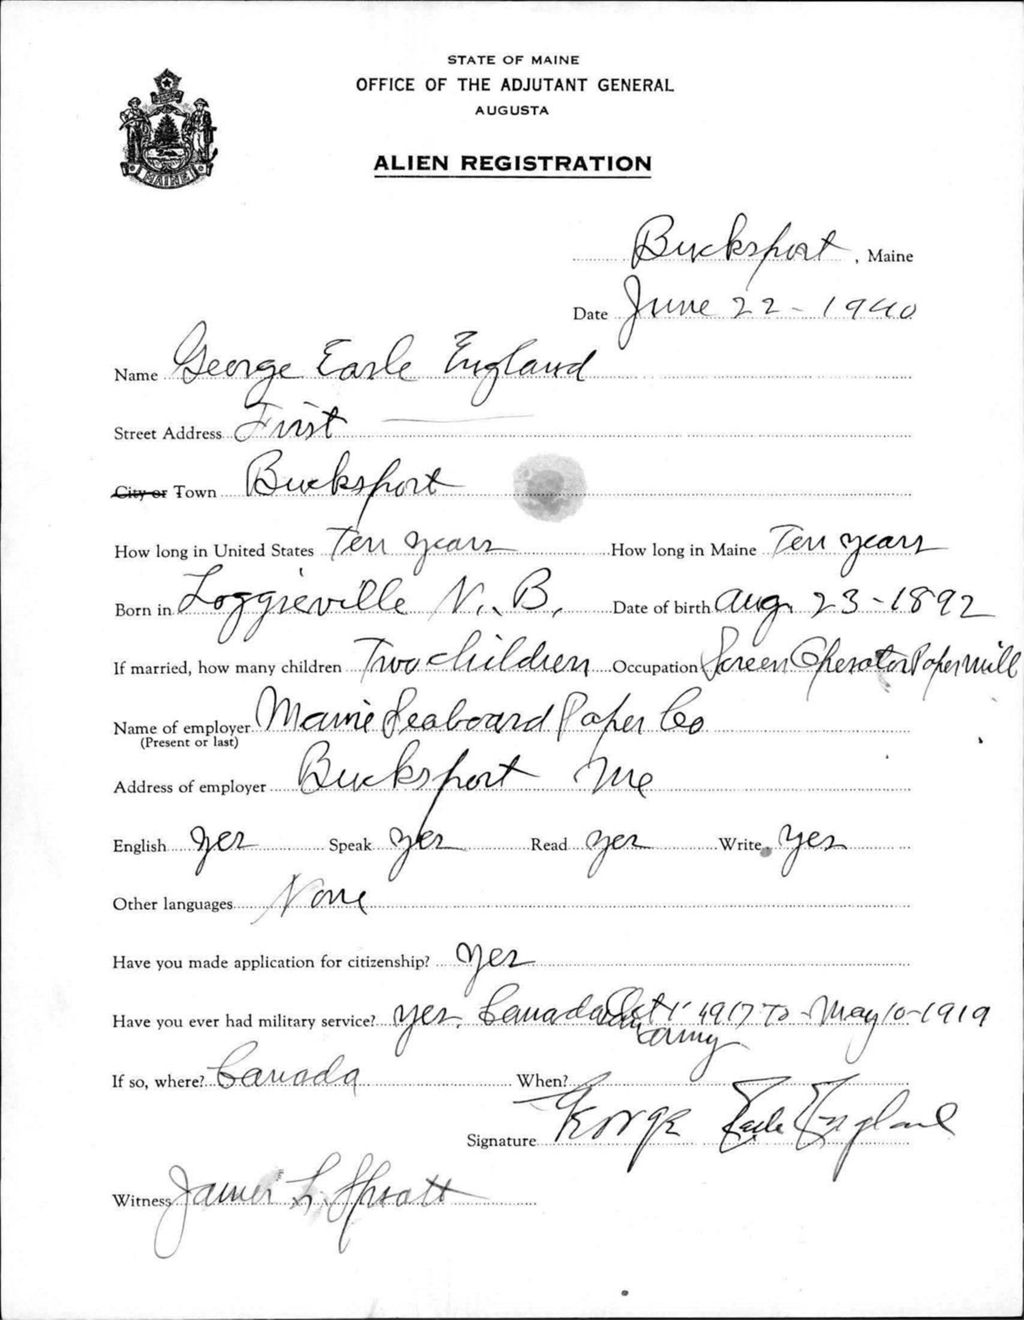 STATE OF MAINE
OFFICE OF THE ADJUTANT GENERAL
AUGUSTA
MAINE
ALIEN REGISTRATION
Bucksport, Maine
Date June 22 - 1940
Name George Earle England
Street Address First
City or Town Bucksport
How long in United States Ten years How long in Maine Ten years
Born in Loggieville N. B. Date of birth Aug. 23 - 1892
If married, how many children Two children Occupation Screen Operator Paper mill
Name of employer Maine Seaboard Paper Co
(Present or last)
Address of employer Bucksport Me
English yes Speak yes Read yes Write yes
Other languages None
Have you made application for citizenship? yes
Have you ever had military service? yes. Canadian Oct 1 - 1917 To - May 10 - 1919
army
If so, where? Canada When?
Signature George Earle England
Witness James L. Spratt